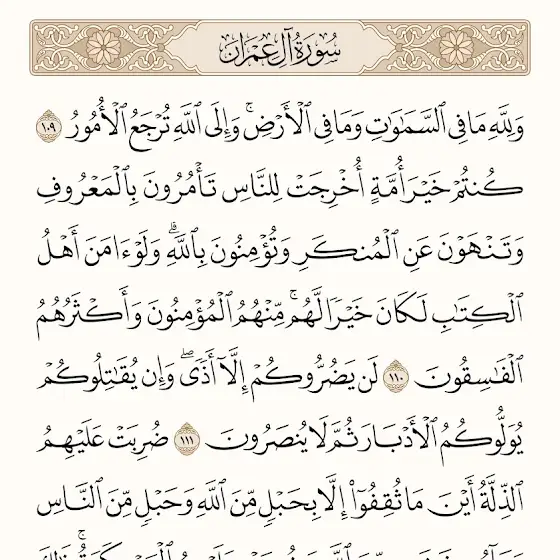 سُورَةُ آلِ عِمْرَان
وَلِلَّهِ مَا فِي ٱلسَّمَٰوَٰتِ وَمَا فِي ٱلْأَرْضِ ۚ وَإِلَى ٱللَّهِ تُرْجَعُ ٱلْأُمُورُ ١٠٩
كُنتُمْ خَيْرَ أُمَّةٍ أُخْرِجَتْ لِلنَّاسِ تَأْمُرُونَ بِٱلْمَعْرُوفِ
وَتَنْهَوْنَ عَنِ ٱلْمُنكَرِ وَتُؤْمِنُونَ بِٱللَّهِ ۗ وَلَوْ ءَامَنَ أَهْلُ
ٱلْكِتَٰبِ لَكَانَ خَيْرًا لَّهُم ۚ مِّنْهُمُ ٱلْمُؤْمِنُونَ وَأَكْثَرُهُمُ
ٱلْفَٰسِقُونَ ١١٠ لَن يَضُرُّوكُمْ إِلَّآ أَذًى ۖ وَإِن يُقَٰتِلُوكُمْ
يُوَلُّوكُمُ ٱلْأَدْبَارَ ثُمَّ لَا يُنصَرُونَ ١١١ ضُرِبَتْ عَلَيْهِمُ
ٱلذِّلَّةُ أَيْنَ مَا ثُقِفُوٓا۟ إِلَّا بِحَبْلٍ مِّنَ ٱللَّهِ وَحَبْلٍ مِّنَ ٱلنَّاسِ